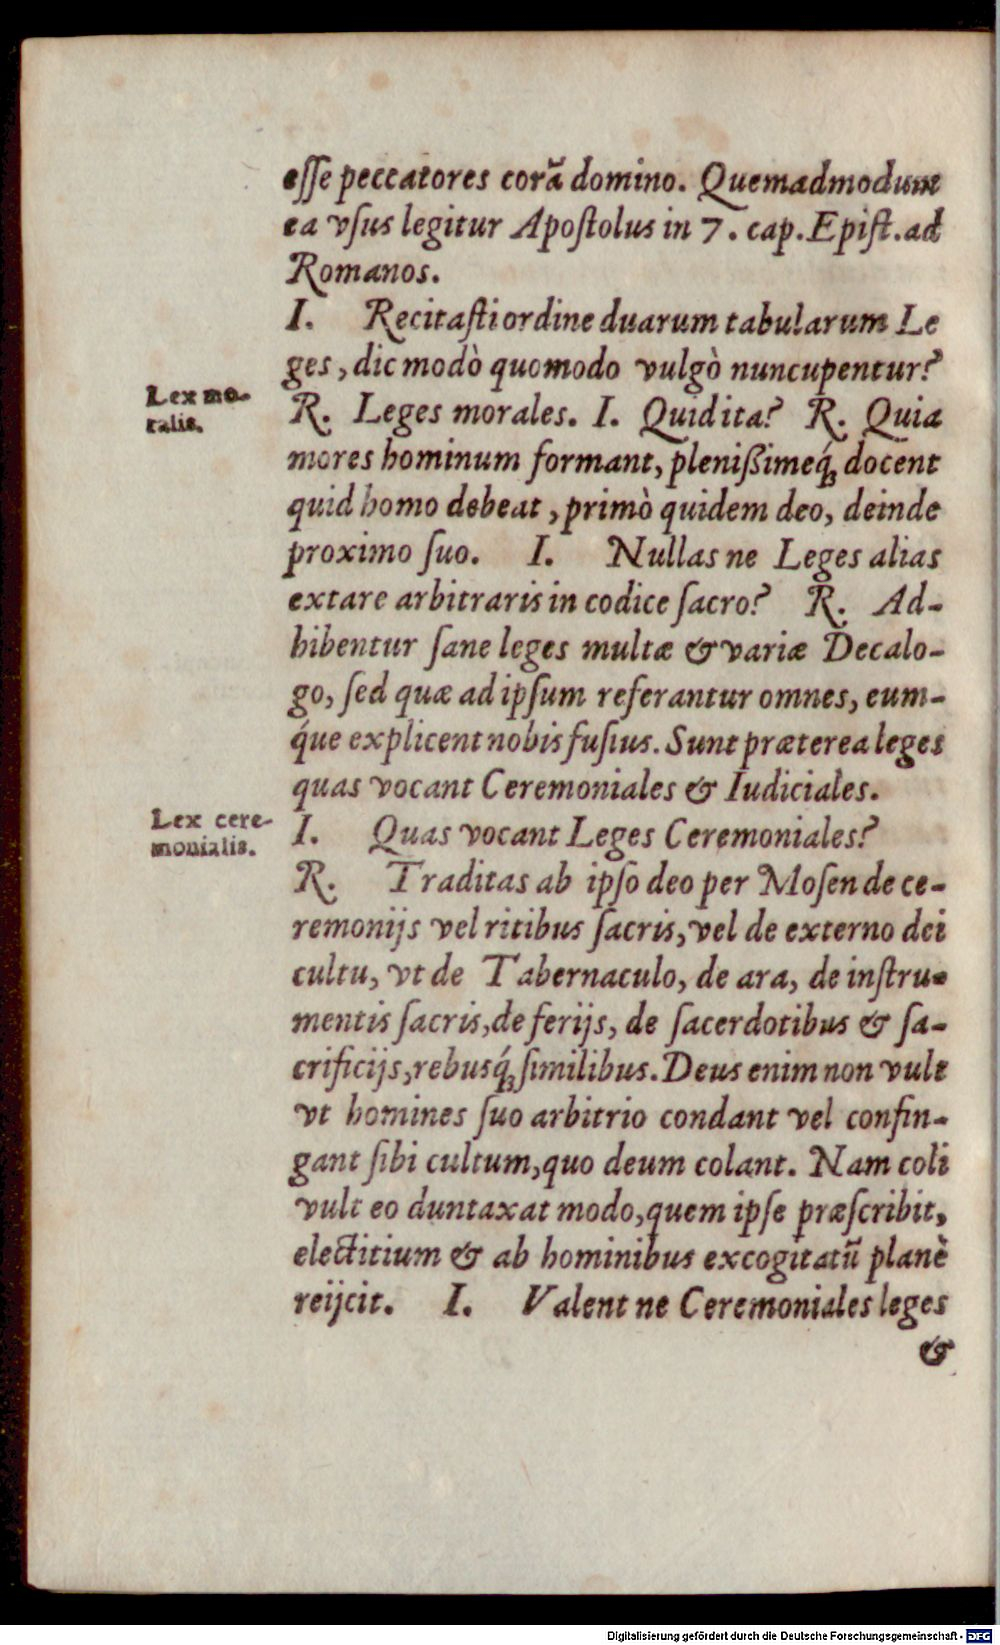 eſſe peccatores corã domino. Quemadmodum
ea vſus legitur Apoſtolus in 7. cap. Epiſt. ad
Romanos.
I. Recitaſti ordine duarum tabularum Le
ges, dic modò quomodo vulgò nuncupentur?
Lex mo-
ralis.
R. Leges morales. I. Quid ita? R. Quia
mores hominum formant, plenißimeq́ꝫ docent
quid homo debeat, primò quidem deo, deinde
proximo ſuo. I. Nullas ne Leges alias
extare arbitraris in codice ſacro? R. Ad-
hibentur ſane leges multæ & variæ Decalo-
go, ſed quæ ad ipſum referantur omnes, eum-
q́ue explicent nobis fuſius. Sunt præterea leges
quas vocant Ceremoniales & Iudiciales.
Lex cere-
monialis.
I. Quas vocant Leges Ceremoniales?
R. Traditas ab ipſo deo per Moſen de ce-
remonijs vel ritibus ſacris, vel de externo dei
cultu, vt de Tabernaculo, de ara, de inſtru-
mentis ſacris, de ferijs, de ſacerdotibus & ſa-
crificijs, rebusq́ꝫ ſimilibus. Deus enim non vult
vt homines ſuo arbitrio condant vel confin-
gant ſibi cultum, quo deum colant. Nam coli
vult eo duntaxat modo, quem ipſe præſcribit,
electitium & ab hominibus excogitatũ planè
reijcit. I. Valent ne Ceremoniales leges
&
Digitalisierung gefördert durch die Deutsche Forschungsgemeinschaft - DFG